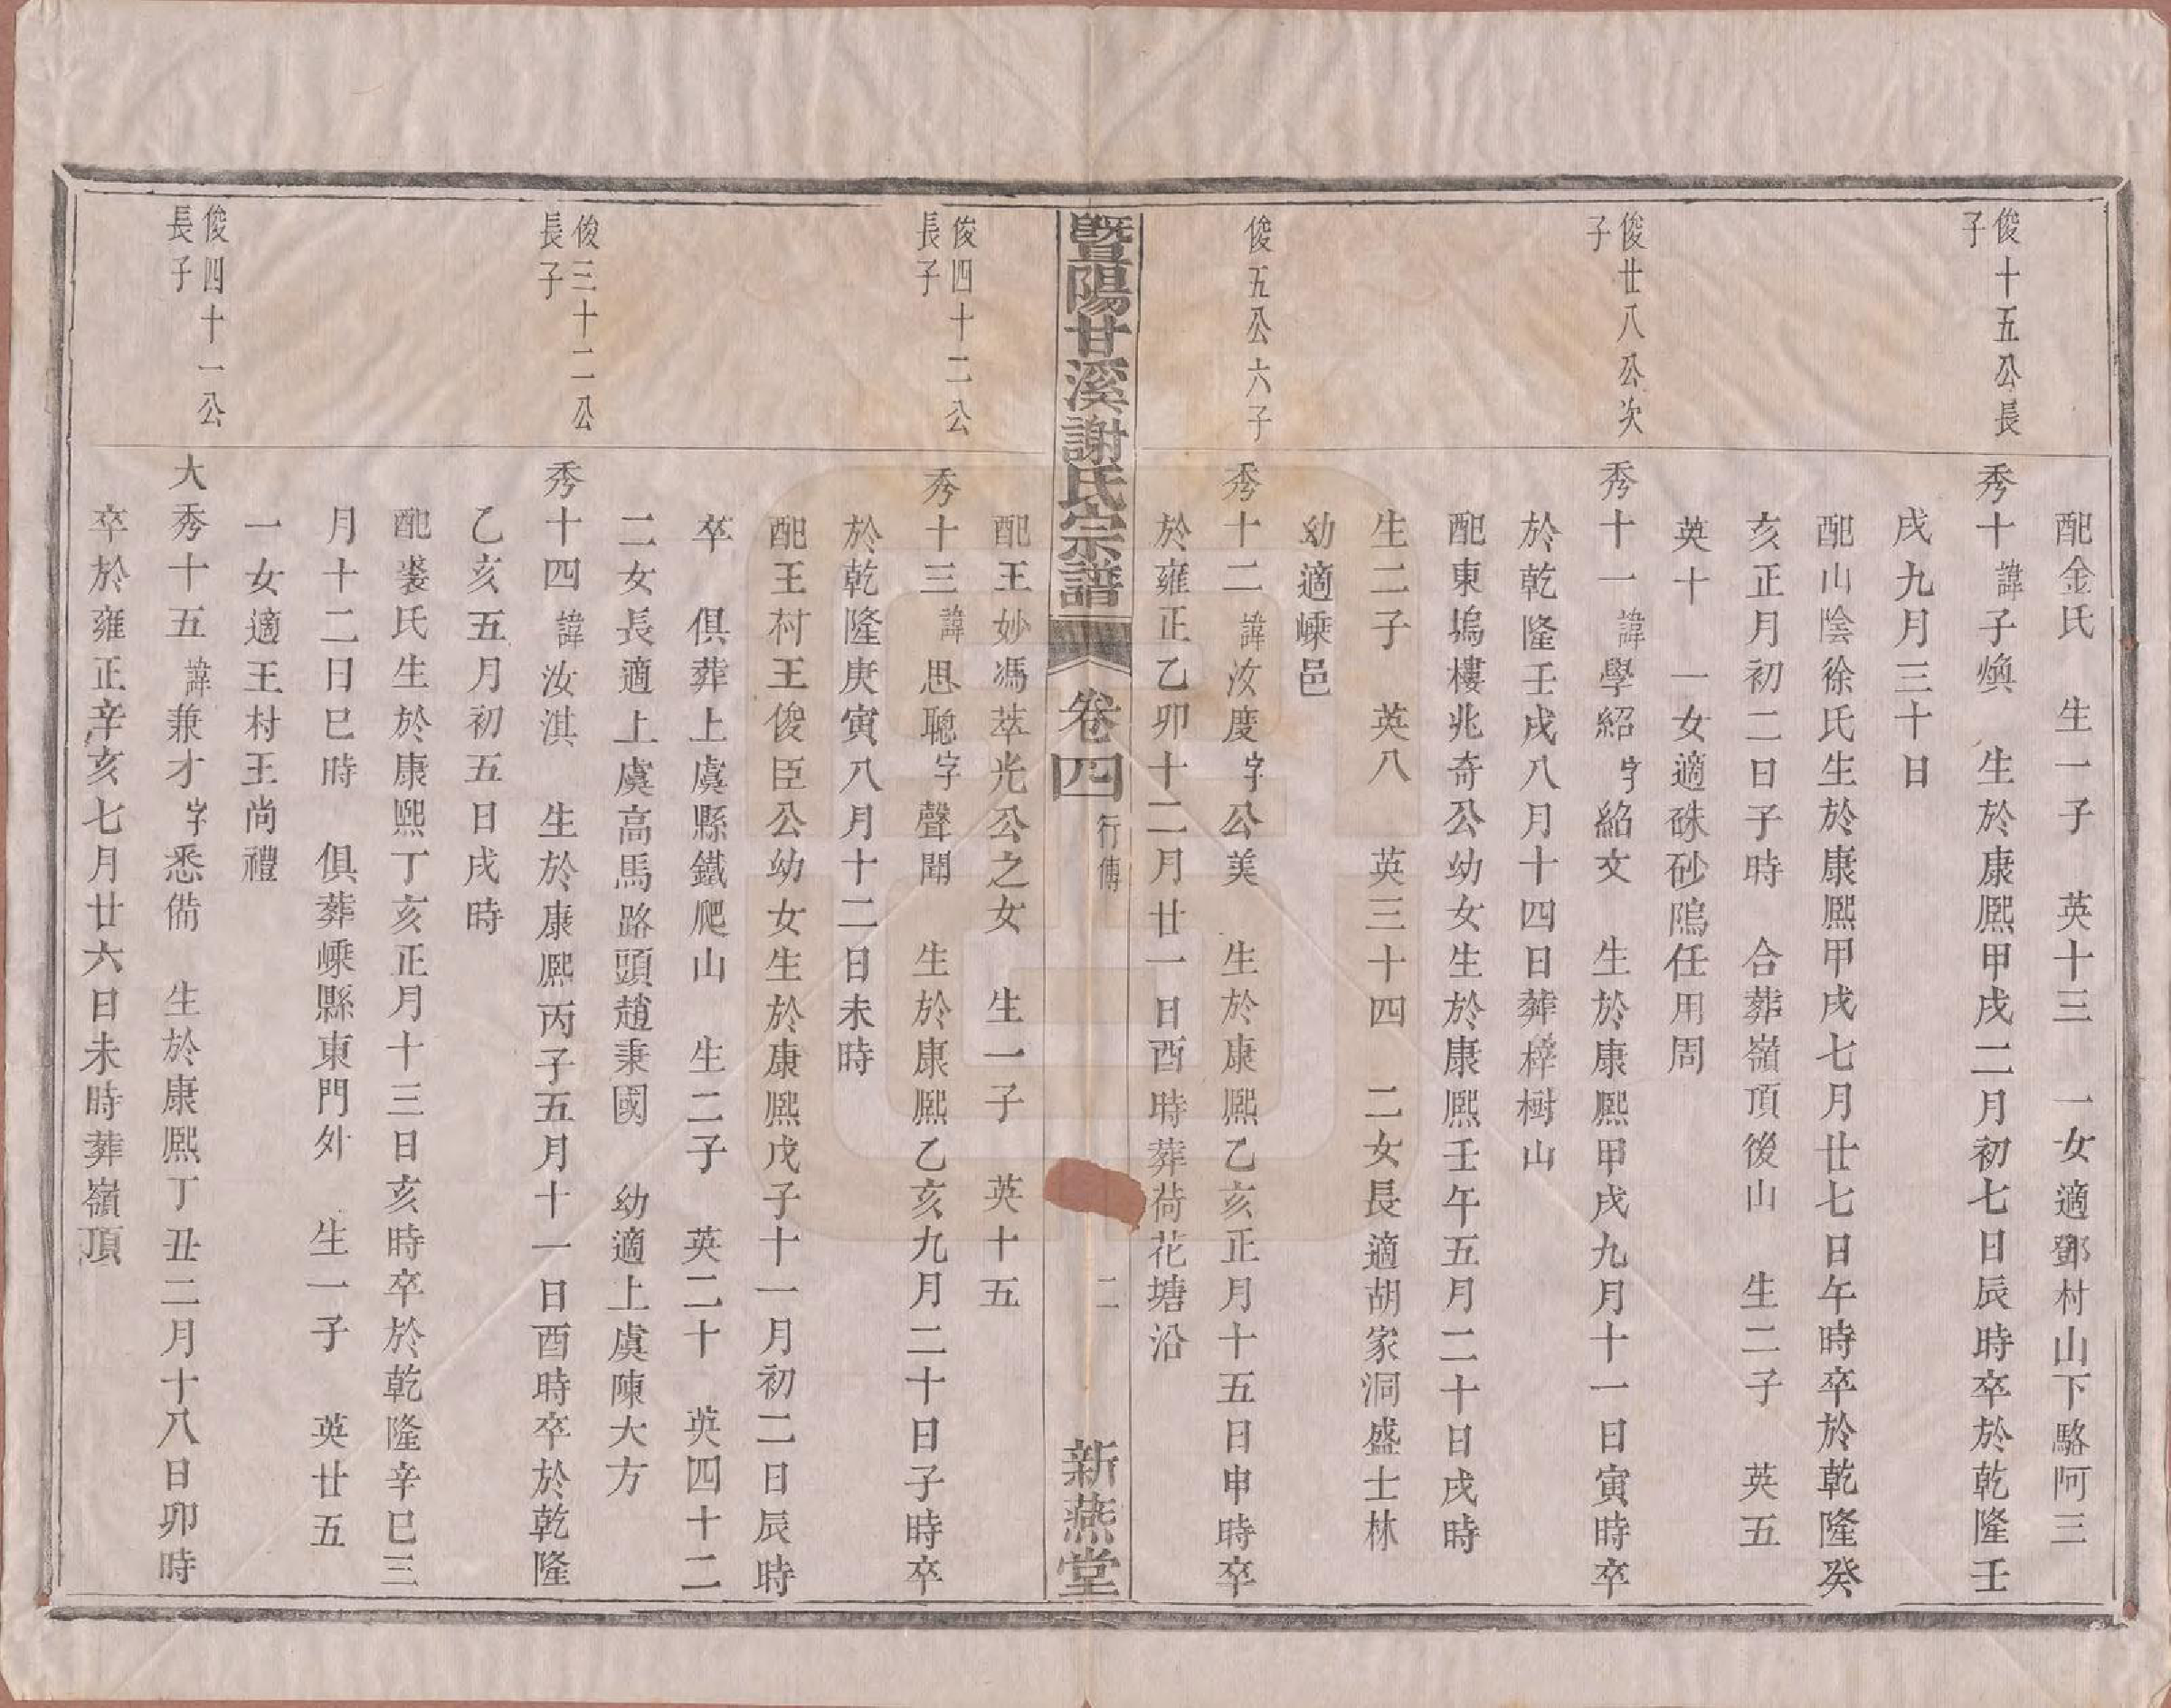 配金氏　生一子　英十三　一女適鄧村山下駱阿三
俊十五公長
子
秀十諱子煥　生於康熙甲戌二月初七日辰時卒於乾隆壬
戌九月三十日
配山陰徐氏生於康熙甲戌七月廿七日午時卒於乾隆癸
亥正月初二日子時　合葬嶺頂後山　生二子　英五
英十　一女適硃砂隖任用周
俊廿八公次
子
秀十一諱學紹字紹文　生於康熙甲戌九月十一日寅時卒
於乾隆壬戌八月十四日葬梓樹山
配東塢樓兆奇公幼女生於康熙壬午五月二十日戌時
生二子　英八　英三十四　二女長適胡家洞盛士林
幼適嵊邑
俊五公六子
秀十二諱汝度字公美　生於康熙乙亥正月十五日申時卒
於雍正乙卯十二月廿一日酉時葬荷花塘沿
暨陽甘溪謝氏宗譜　卷四　行傳　二　新燕堂
配王妙馮萃光公之女　生一子　英十五
俊四十二公
長子
秀十三諱思聰字聲聞　生於康熙乙亥九月二十日子時卒
於乾隆庚寅八月十二日未時
配王村王俊臣公幼女生於康熙戊子十一月初二日辰時
卒　俱葬上虞縣鐵爬山　生二子　英二十　英四十二
二女長適上虞高馬路頭趙秉國　幼適上虞陳大方
俊三十二公
長子
秀十四諱汝淇　生於康熙丙子五月十一日酉時卒於乾隆
乙亥五月初五日戌時
配裘氏生於康熙丁亥正月十三日亥時卒於乾隆辛巳三
月十二日巳時　俱葬嵊縣東門外　生一子　英廿五
一女適王村王尚禮
俊四十一公
長子
大秀十五諱兼才字悉備　生於康熙丁丑二月十八日卯時
卒於雍正辛亥七月廿六日未時葬嶺頂